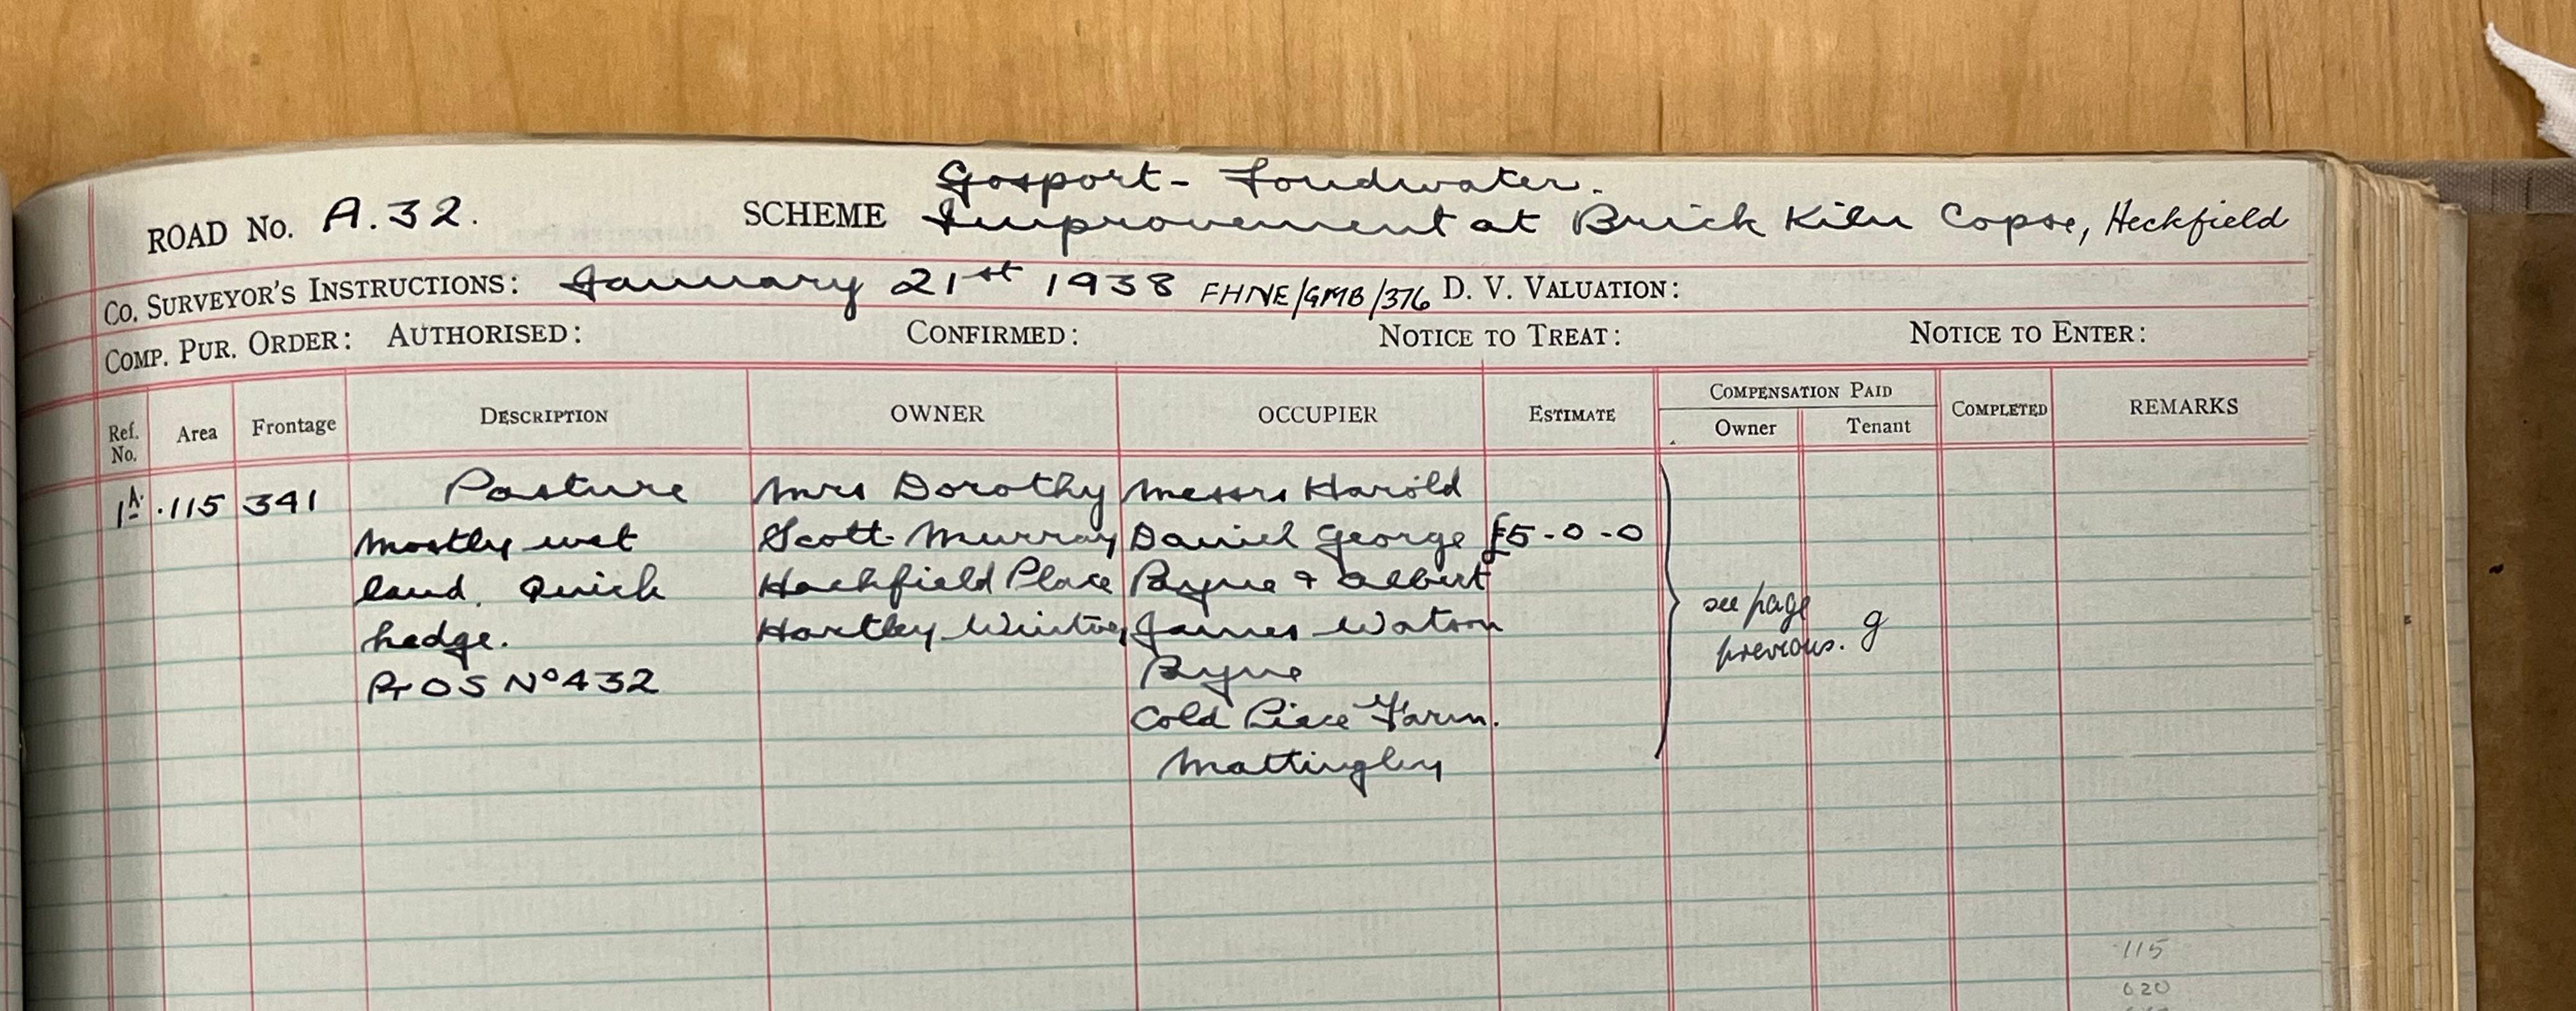 Gosport - Loudwater.
ROAD No. A.32. SCHEME Improvement at Brick Kiln Copse, Heckfield
Co. SURVEYOR'S INSTRUCTIONS: January 21st 1938 FHNE/GMB/376 D. V. VALUATION:
COMP. PUR. ORDER: AUTHORISED: CONFIRMED: NOTICE TO TREAT: NOTICE TO ENTER:
Ref. No. Area Frontage DESCRIPTION OWNER OCCUPIER ESTIMATE COMPENSATION PAID Owner Tenant COMPLETED REMARKS
1A. .115 341 Pasture Mrs Dorothy Messrs Harold
mostly wet Scott-Murray Daniel George £5-0-0
land. Quick Heckfield Place Byne & Albert
hedge. Hartley Wintney James Watson see page
Pt OS No 432 Byne previous. 9
Cold Piece Farm.
Mattingley
.115
020